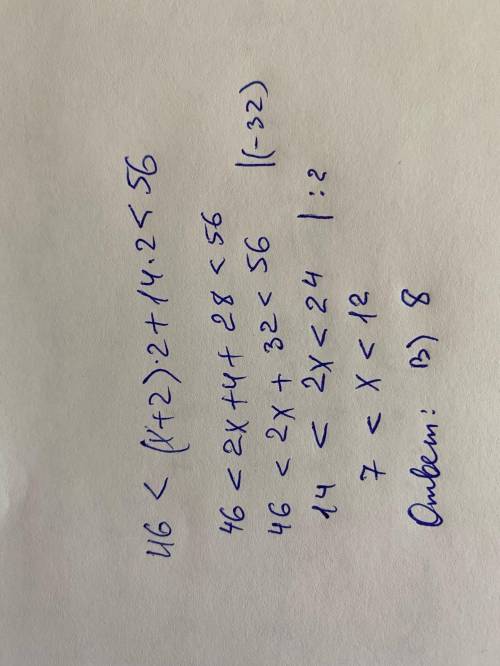 46 < (x+2)·2+14·2 < 56
46 < 2x+4+28 < 56
46 < 2x+32 < 56 |(-32)
14 < 2x < 24 | :2
7 < x < 12
Ответ: B) 8